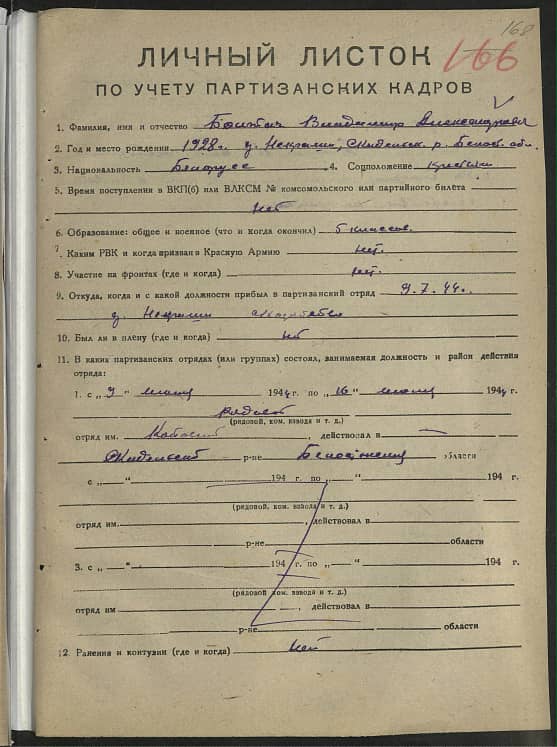 168
ЛИЧНЫЙ ЛИСТОК 166
ПО УЧЕТУ ПАРТИЗАНСКИХ КАДРОВ
1. Фамилия, имя и отчество Владимир Александрович
2. Год и место рождения 1928г. д. Некраши, Скидельск. р. Белост. обл.
3. Национальность Белорусс 4. Соцположение
5. Время поступления в ВКП(б) или ВЛКСМ № комсомольского или партийного билета
Нет
6. Образование: общее и военное (что и когда окончил) 5 классов.
7. Каким РВК и когда призван в Красную Армию нет.
8. Участие на фронтах (где и когда) нет.
9. Откуда, когда и с какой должности прибыл в партизанский отряд 9.7.44г.
д. Некраши
10. Был ли в плену (где и когда) нет
11. В каких партизанских отрядах (или группах) состоял, занимаемая должность и район действия
отряда:
1. с „9" июля 1944 г. по „16" июля 1944 г.
рядов
(рядовой, ком. взвода и т. д.)
отряд им. действовал в —
Скидельск р-не Белостокской области
с „—"— 194 г. по „—"— 194 г.
(рядовой, ком. взвода и т. д.)
отряд им. , действовал в
р-не области
3. с „—"— 194 г. по „—"— 194 г.
(рядовой ком. взвода и т. д.)
отряд им , действовал в
р-не области
12. Ранения и контузии (где и когда) нет